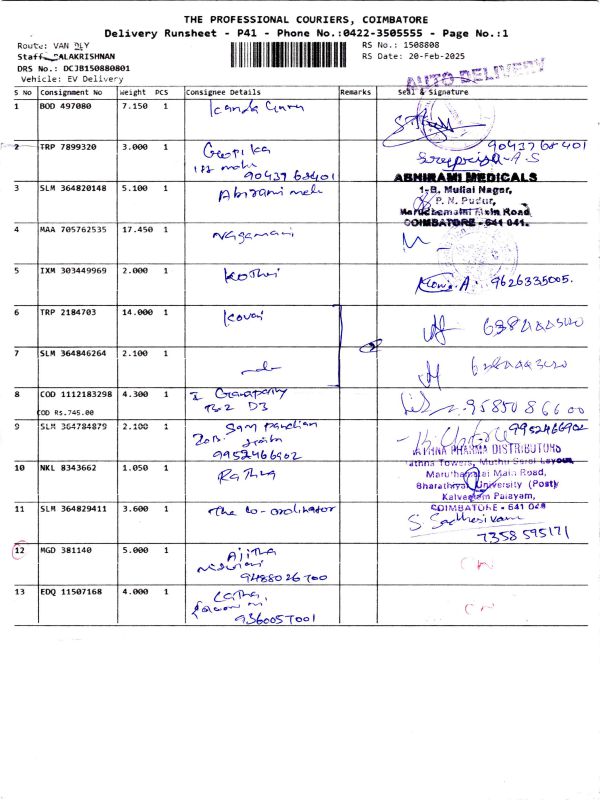 THE PROFESSIONAL COURIERS, COIMBATORE
Delivery Runsheet - P41 - Phone No.:0422-3505555 - Page No.:1
Route: VAN DLY
RS No.: 1508808
Staff: BALAKRISHNAN
RS Date: 20-Feb-2025
DRS No.: DCJB150880801
Vehicle: EV Delivery
AUTO DELIVERY
S No Consignment No Weight PCS Consignee Details Remarks Seal & Signature
1 BOD 497080 7.150 1
2 TRP 7899320 3.000 1 Gopika 9043768401
1st mail
9043768401
3 SLM 364820148 5.100 1 Abirami medi
ABHIRAMI MEDICALS
1-B, Mullai Nagar,
P. N. Pudur,
Maruthamalai Main Road,
COIMBATORE - 641 041.
4 MAA 705762535 17.450 1 Nagamani
5 IXM 303449969 2.000 1 Kothai 9626335005.
6 TRP 2184703 14.000 1 Kovai
7 SLM 364846264 2.100 1
8 COD 1112183298 4.300 1 Ganapathy 9585086600
COD Rs.745.00 D3
9 SLM 364784879 2.100 1 Sam Pandian 9952466902
9952466902
RATHNA PHARMA DISTRIBUTORS
Rathna Towers, Muthu Gopal Layout,
Maruthamalai Main Road,
Bharathiyar University (Post)
Kalveetam Palayam,
COIMBATORE - 641 046
10 NKL 8343662 1.050 1 Rathna
11 SLM 364829411 3.600 1 The Co-ordinator S Sadhasivam
7358595171
12 MGD 381140 5.000 1 Ajitha
9488026700
13 EDQ 11507168 4.000 1 Latha
9360057001